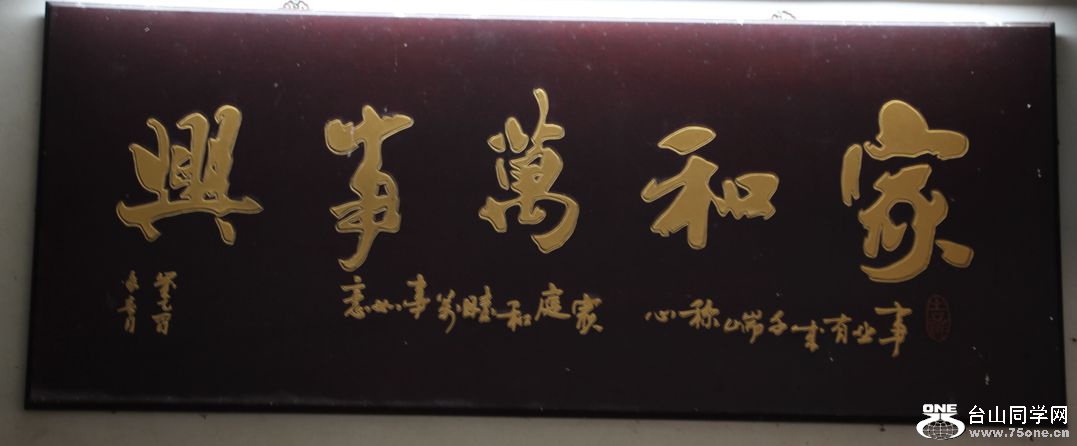 家和萬事興
事业有成千端称心
家庭和睦万事如意
ONE
台山同学网
www.75one.cn